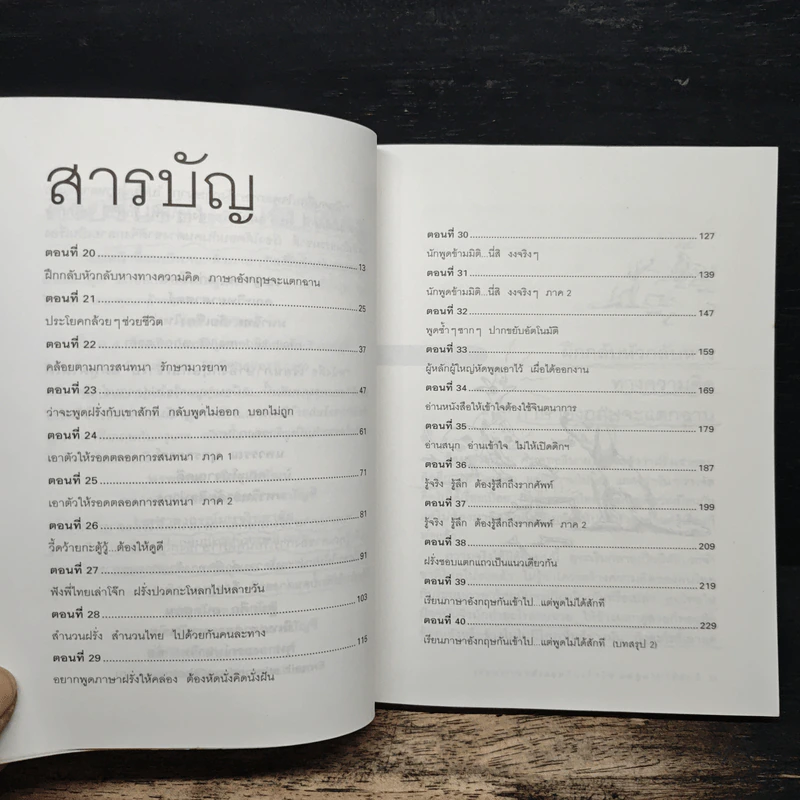 สารบัญ
ตอนที่ 20 13
ฝึกกลับหัวกลับหางทางความคิด ภาษาอังกฤษจะแตกฉาน
ตอนที่ 21 25
ประโยคกล้วยๆช่วยชีวิต
ตอนที่ 22 37
คล้อยตามการสนทนา รักษามารยาท
ตอนที่ 23 47
ว่าจะพูดฝรั่งกับเขาสักที กลับพูดไม่ออก บอกไม่ถูก
ตอนที่ 24 61
เอาตัวให้รอดตลอดการสนทนา ภาค 1
ตอนที่ 25 71
เอาตัวให้รอดตลอดการสนทนา ภาค 2
ตอนที่ 26 81
วี้ดว้ายกะตู้วู้...ต้องให้ดูดี
ตอนที่ 27 91
ฟังพี่ไทยเล่าโจ๊ก ฝรั่งปวดกะโหลกไปหลายวัน
ตอนที่ 28 103
สำนวนฝรั่ง สำนวนไทย ไปด้วยกันคนละทาง
ตอนที่ 29 115
อยากพูดภาษาฝรั่งให้คล่อง ต้องหัดนั่งคิดนั่งฝัน
ตอนที่ 30 127
นักพูดข้ามมิติ...นี่สิ งงจริงๆ
ตอนที่ 31 139
นักพูดข้ามมิติ...นี่สิ งงจริงๆ ภาค 2
ตอนที่ 32 147
พูดซ้ำๆซากๆ ปากขยับอัตโนมัติ
ตอนที่ 33 159
ผู้หลักผู้ใหญ่หัดพูดเอาไว้ เผื่อได้ออกงาน
ตอนที่ 34 169
อ่านหนังสือให้เข้าใจต้องใช้จินตนาการ
ตอนที่ 35 179
อ่านสนุก อ่านเข้าใจ ไม่ให้เปิดดิกฯ
ตอนที่ 36 187
รู้จริง รู้ลึก ต้องรู้สึกถึงรากศัพท์
ตอนที่ 37 199
รู้จริง รู้ลึก ต้องรู้สึกถึงรากศัพท์ ภาค 2
ตอนที่ 38 209
ฝรั่งชอบแตกแถวเป็นแนวเดียวกัน
ตอนที่ 39 219
เรียนภาษาอังกฤษกันเข้าไป...แต่พูดไม่ได้สักที
ตอนที่ 40 229
เรียนภาษาอังกฤษกันเข้าไป...แต่พูดไม่ได้สักที (บทสรุป 2)